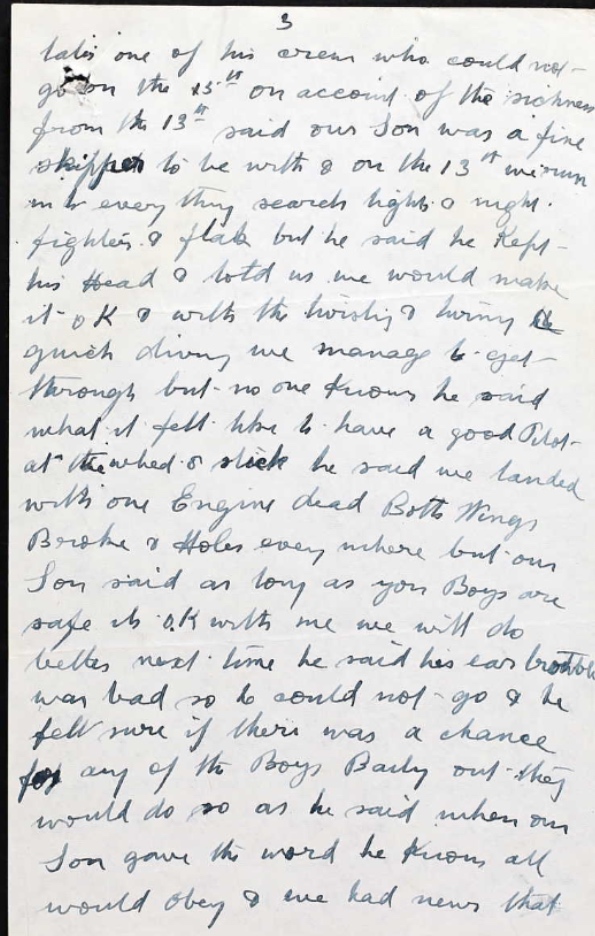 3
late one of his crew who could not
go on the 15th on account of the sickness
from the 13th said our Son was a fine
skipper to be with & on the 13th we run
in to every thing search lights & night
fighters & flak but he said he Kept
his Head & told us we would make
it OK & with the twisting & turning &
quick diving we manage to get
through but no one Knows he said
what it felt like to have a good Pilot
at the wheel & stick he said we landed
with one Engine dead Both Wings
Broke & Holes every where but our
Son said as long as you Boys are
safe its O.K with me we will do
better next time he said his ear trouble
was bad so he could not go & he
felt sure if there was a chance
for any of the Boys Baily out they
would do so as he said when our
Son gave the word he Knows all
would obey & we had news that